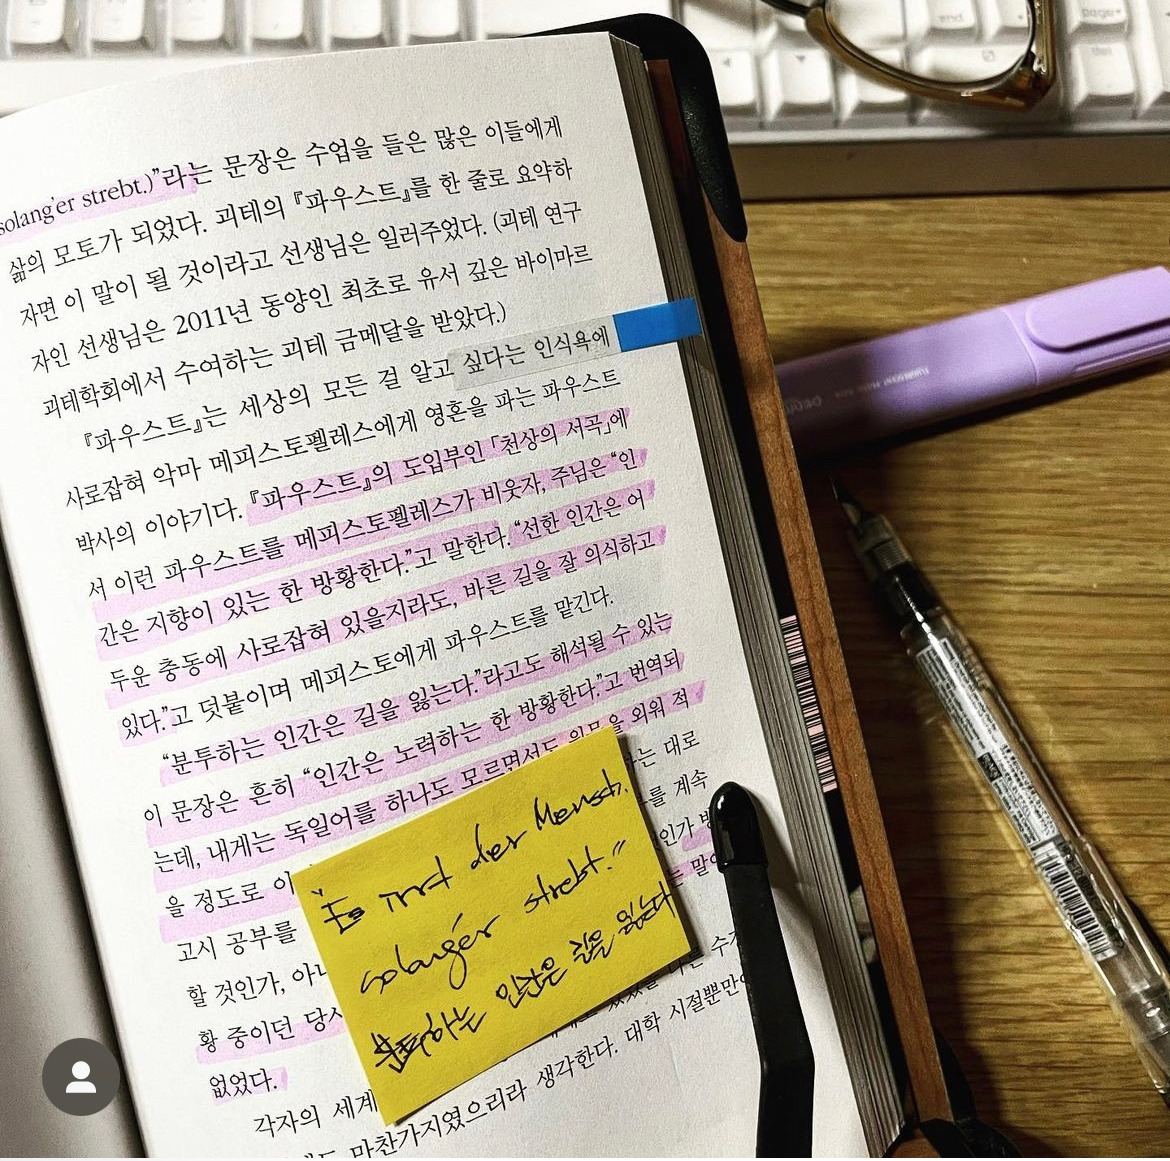 solang'er strebt.)”라는 문장은 수업을 들은 많은 이들에게
삶의 모토가 되었다. 괴테의 『파우스트』를 한 줄로 요약하
자면 이 말이 될 것이라고 선생님은 일러주었다. (괴테 연구
자인 선생님은 2011년 동양인 최초로 유서 깊은 바이마르
괴테학회에서 수여하는 괴테 금메달을 받았다.)
『파우스트』는 세상의 모든 걸 알고 싶다는 인식욕에
사로잡혀 악마 메피스토펠레스에게 영혼을 파는 파우스트
박사의 이야기다. 『파우스트』의 도입부인 「천상의 서곡」에
서 이런 파우스트를 메피스토펠레스가 비웃자, 주님은 “인
간은 지향이 있는 한 방황한다.”고 말한다. “선한 인간은 어
두운 충동에 사로잡혀 있을지라도, 바른 길을 잘 의식하고
있다.”고 덧붙이며 메피스토에게 파우스트를 맡긴다.
“분투하는 인간은 길을 잃는다.”라고도 해석될 수 있는
이 문장은 흔히 “인간은 노력하는 한 방황한다.”고 번역되
는데, 내게는 독일어를 하나도 모르면서도 원문을 외워 적
을 정도로 는 대로
고시 공부를 를 계속
할 것인가, 아니 인가
황 중이던 당시 는 말이
없었다.
각자의 세계 대학 시절뿐만
마찬가지였으리라 생각한다.
“Es irrt der Mensch.
solang'er strebt.”
분투하는 인간은 길을 잃는다
end